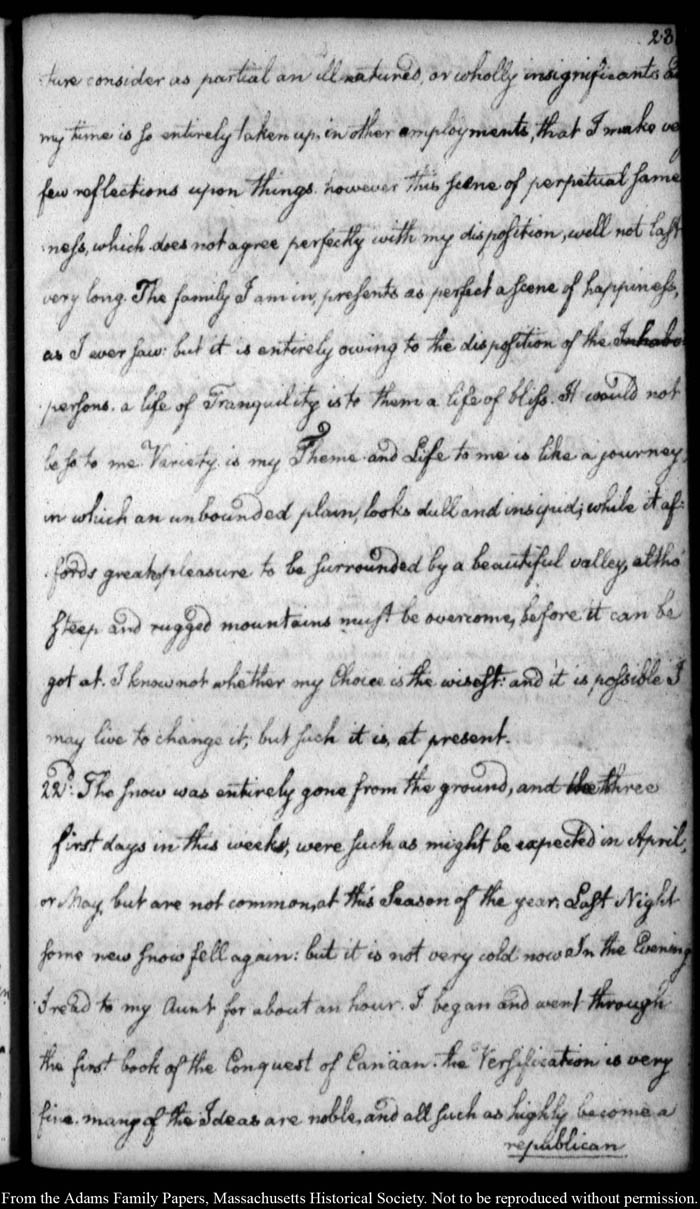 23
ture consider as partial an ill natured, or wholly insignificant;
my time is so entirely taken up, in other employments, that I make
few reflections upon things. however this scene of perpetual same
ness, which does not agree perfectly with my disposition, will not last
very long. The family I am in, presents as perfect a scene of happiness,
as I ever saw: but it is entirely owing to the disposition of the
persons. a life of Tranquility is to them a life of bliss. It would not
be so to me Variety is my Theme and Life to me is like a journey,
in which an unbounded plain, looks dull and insipid; while it af-
fords great pleasure to be surrounded by a beautiful valley, altho'
steep and rugged mountains must be overcome, before it can be
got at. I know not whether my Choice is the wisest: and it is possible I
may live to change it; but such it is, at present.
22d: The snow was entirely gone from the ground, and three
first days in this week, were such as might be expected in April,
or May, but are not common, at this Season of the year. Last Night
some new snow fell again: but it is not very cold now In the Evening
I read to my Aunt for about an hour. I began and went through
the first book of the Conquest of Canäan. the Versification is very
fine. many of the Ideas are noble, and all such as highly become a
republican
From the Adams Family Papers, Massachusetts Historical Society. Not to be reproduced without permission.